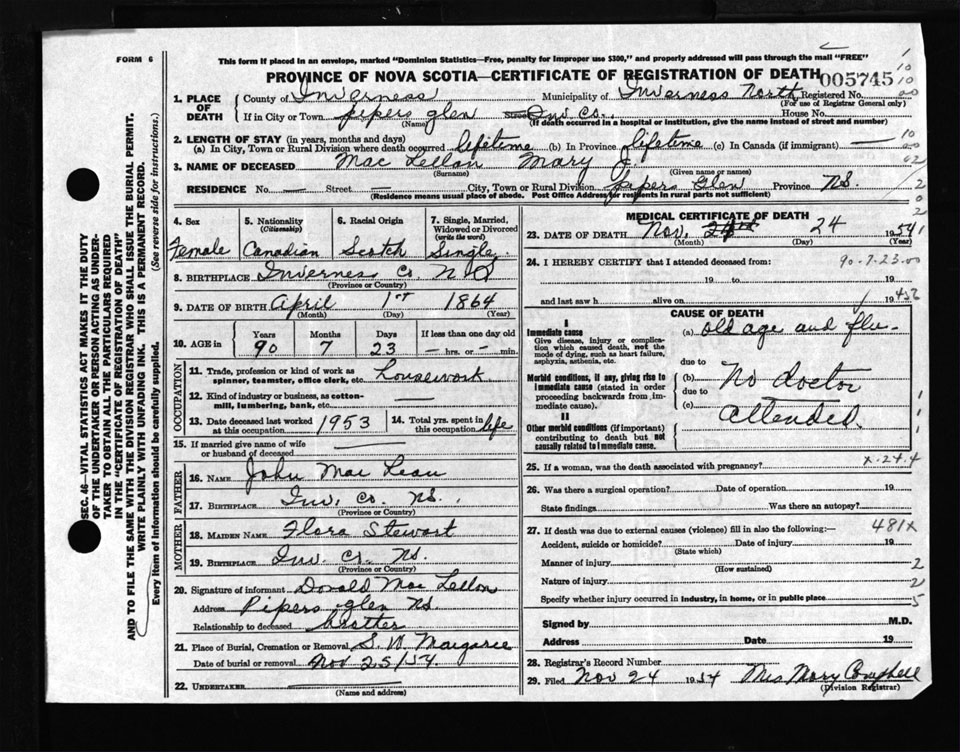 FORM 6
This form if placed in an envelope, marked "Dominion Statistics—Free, penalty for improper use $300," and properly addressed will pass through the mail "FREE"
PROVINCE OF NOVA SCOTIA—CERTIFICATE OF REGISTRATION OF DEATH 005745
1. PLACE OF DEATH County of Inverness Municipality of Inverness North Registered No.
(For use of Registrar General only)
If in City or Town pipers glen Street Inv Co., House No.
(Name) (If death occurred in a hospital or institution, give the name instead of street and number)
2. LENGTH OF STAY (in years, months and days)
(a) In City, Town or Rural Division where death occurred lifetime (b) In Province lifetime (c) In Canada (if immigrant) —
3. NAME OF DECEASED Mac Lellan Mary J.
(Surname) (Given name or names)
RESIDENCE No. — Street — City, Town or Rural Division pipers Glen Province N.S.
(Residence means usual place of abode. Post Office Address for residents in rural parts not sufficient)
SEC. 46—VITAL STATISTICS ACT MAKES IT THE DUTY
OF THE UNDERTAKER OR PERSON ACTING AS UNDER-
TAKER TO OBTAIN ALL THE PARTICULARS REQUIRED
IN THE "CERTIFICATE OF REGISTRATION OF DEATH"
AND TO FILE THE SAME WITH THE DIVISION REGISTRAR WHO SHALL ISSUE THE BURIAL PERMIT.
WRITE PLAINLY WITH UNFADING INK. THIS IS A PERMANENT RECORD.
Every item of information should be carefully supplied. (See reverse side for instructions.)
4. Sex 5. Nationality (Citizenship) 6. Racial Origin 7. Single, Married, Widowed or Divorced (write the word)
Female Canadian Scotch Single
8. BIRTHPLACE Inverness Co N.S
(Province or Country)
9. DATE OF BIRTH April 1st 1864
(Month) (Day) (Year)
10. AGE in Years Months Days If less than one day old
90 7 23 — hrs. or — min.
OCCUPATION
11. Trade, profession or kind of work as
spinner, teamster, office clerk, etc. housework
12. Kind of industry or business, as cotton-
mill, lumbering, bank, etc.
13. Date deceased last worked at this occupation 1953 14. Total yrs. spent in this occupation life
15. If married give name of wife
or husband of deceased
FATHER
16. NAME John Mac Lean
17. BIRTHPLACE Inv. Co. N.S.
(Province or Country)
MOTHER
18. MAIDEN NAME Flora Stewart
19. BIRTHPLACE Inv. Co. N.S.
(Province or Country)
20. Signature of informant Donald Mac Lellan
Address Pipers glen N.S.
Relationship to deceased brother
21. Place of Burial, Cremation or Removal S. W. Margaree
Date of burial or removal Nov 25/54.
22. UNDERTAKER
(Name and address)
MEDICAL CERTIFICATE OF DEATH
23. DATE OF DEATH Nov. 24th 24 1954
(Month) (Day) (Year)
24. I HEREBY CERTIFY that I attended deceased from: 90-7-23-00
19 to 19
and last saw h alive on 19
CAUSE OF DEATH
I
Immediate cause
Give disease, injury or complication which caused death, not the mode of dying, such as heart failure, asphyxia, asthenia, etc.
(a) old age and flu-
due to
Morbid conditions, if any, giving rise to immediate cause (stated in order proceeding backwards from immediate cause).
(b) No doctor
due to
(c) attended.
II
Other morbid conditions (if important) contributing to death but not causally related to immediate cause.
25. If a woman, was the death associated with pregnancy? x-24.4
26. Was there a surgical operation? Date of operation 19
State findings Was there an autopsy?
27. If death was due to external causes (violence) fill in also the following:— 481x
Accident, suicide or homicide? Date of injury 19
(State which)
Manner of injury 2
(How sustained)
Nature of injury 2
Specify whether injury occurred in industry, in home, or in public place 5
Signed by M.D.
Address Date 19
28. Registrar's Record Number
29. Filed Nov 24 1954 Mrs Mary Campbell
(Division Registrar)